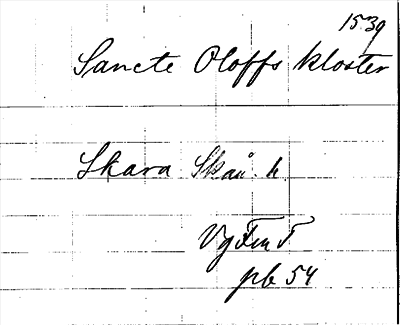 1539
Sancte Oloffs kloster
Skara Skån. h.
Vg Fru T
pb 54